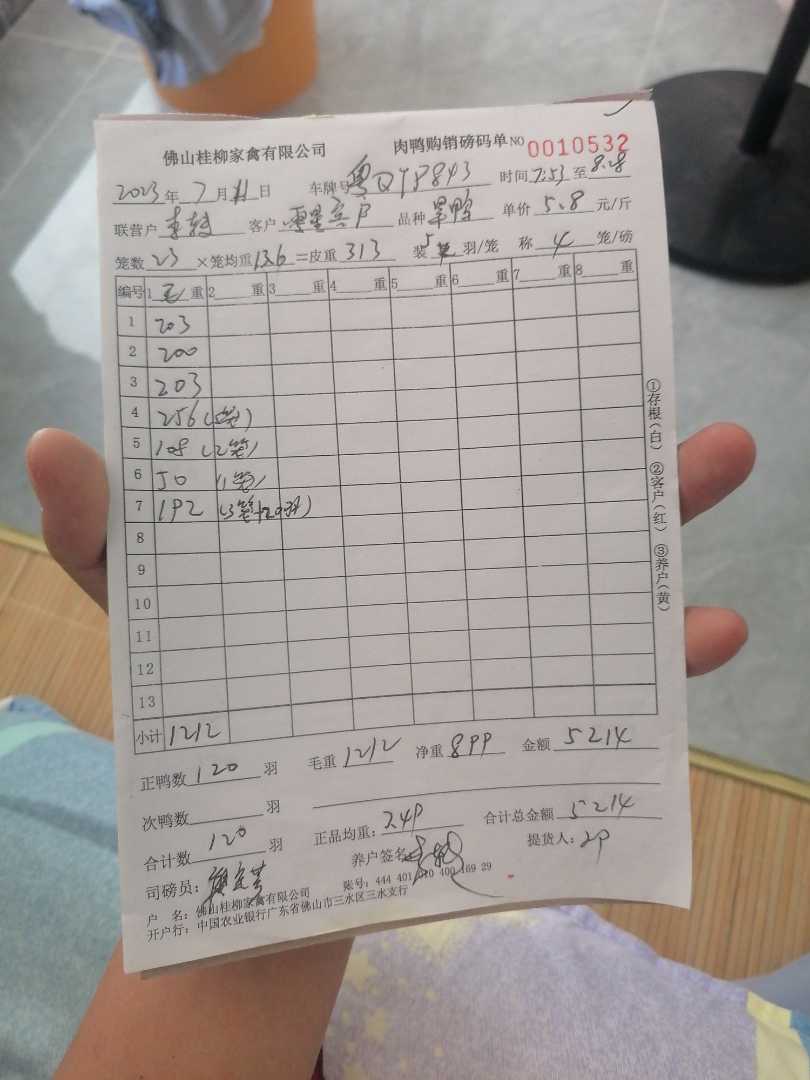 佛山桂柳家禽有限公司 肉鸭购销磅码单 NO 0010532
2023年 7月 11日 车牌号 粤QTP843 时间 7:53 至 8:28
联营户 客户 零星客户 品种 旱鸭 单价 5.8 元/斤
笼数 23 ×笼均重 13.6 =皮重 313 装 5 羽/笼 称 4 笼/磅
编号 1 毛 重 2 重 3 重 4 重 5 重 6 重 7 重 8 重
1 203
2 200
3 203
4 256 (5笼)
5 108 (2笼)
6 50 (1笼)
7 192
8
9
10
11
12
13
小计 1212
正鸭数 120 羽 毛重 1212 净重 899 金额 5214
次鸭数 羽
合计数 120 羽 正品均重: 7.49 合计总金额 5214
司磅员: 养户签名 提货人:
户 名: 佛山桂柳家禽有限公司 账号: 444 401 010 400 169 29
开户行: 中国农业银行广东省佛山市三水区三水支行
①存根(白) ②客户(红) ③养户(黄)